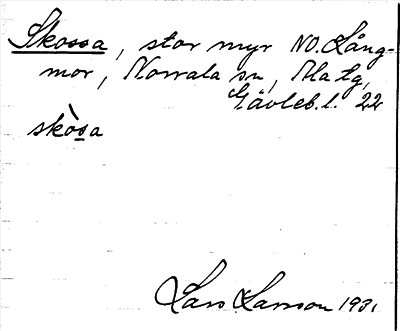 Skossa, stor myr NO. Lång-
mor, Norrala sn, Ala tg,
Gävleb. l. 22
skòsa
Lars Larsson 1931